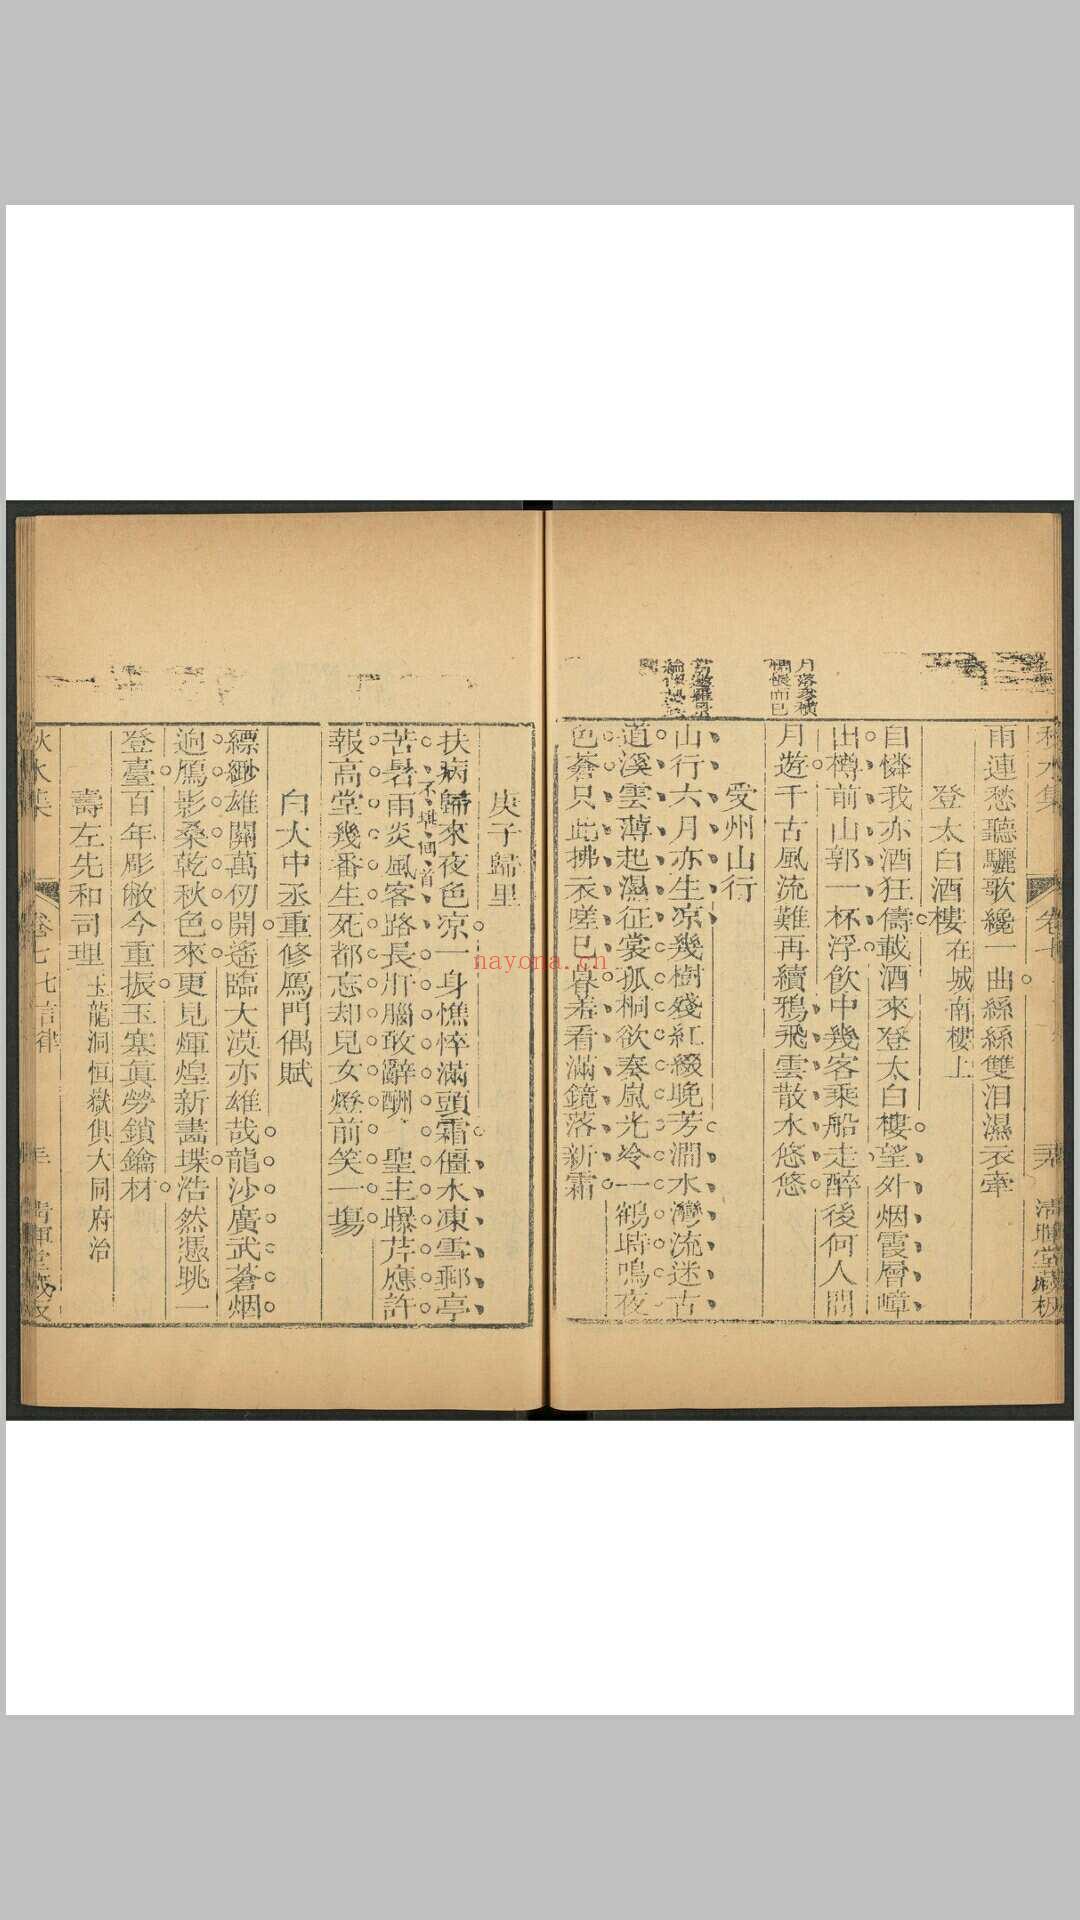 雨連愁聽驪歌纔一曲絲絲雙泪濕衣牽
登太白酒樓在城南樓上
自憐我亦酒狂儔載酒來登太白樓望外烟霞層嶂
出樽前山郭一杯浮飲中幾客乘船走醉後何人問
月遊千古風流難再續鴉飛雲散水悠悠
愛州山行
山行六月亦生凉幾樹殘紅綴晚芳澗水灣流迷古
道溪雲薄起濕征裳孤桐欲奏嵐光冷一鶴時鳴夜
色蒼只此拂衣嗟已暮羞看滿鏡落新霜
月落參橫
惆悵而已
庚子歸里
扶病歸來夜色凉一身憔悴滿頭霜僵木凍雪郵亭
苦暑雨炎風客路長肝腦敢辭酬 聖主曝芹應許
報高堂幾番生死都忘却兒女燈前笑一塲
不堪回首
白大中丞重修鴈門偶賦
縹緲雄關萬仞開遙臨大漠亦雄哉龍沙廣武蒼烟
逈鴈影桑乾秋色來更見煇煌新畵堞浩然憑眺一
登臺百年彫敝今重振玉塞眞勞鎖鑰材
壽左先和司理玉龍洞恒嶽俱大同府治
秋水集 卷七 七言律 清暉堂藏板
nayona.cn